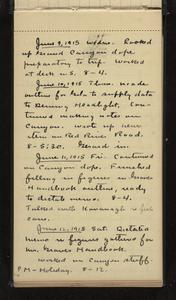 June 9, 1915 Wedn. Looked
up Grand Canyon dope
preparatory to trip. Worked
at desk n.s. 8-4.
June 10, 1915 Thurs. made
outline for Gala to supply data
to Deming Headlight. Con-
tinued making notes on
Canyon. Wrote up
item on Red River Road.
8-5:30. in.
June 11, 1915 Fri. Continued
on Canyon dope. Finished
filling in figures in Graves
Handbook outline, ready
to dictate memo. 8-4.
Talked with Kavanagh
June 12, 1915 Sat. Dictated
memo re figures gathered for
Mr. Graves Handbook.
worked on Canyon stuff
P.M-Holiday. 8-12.